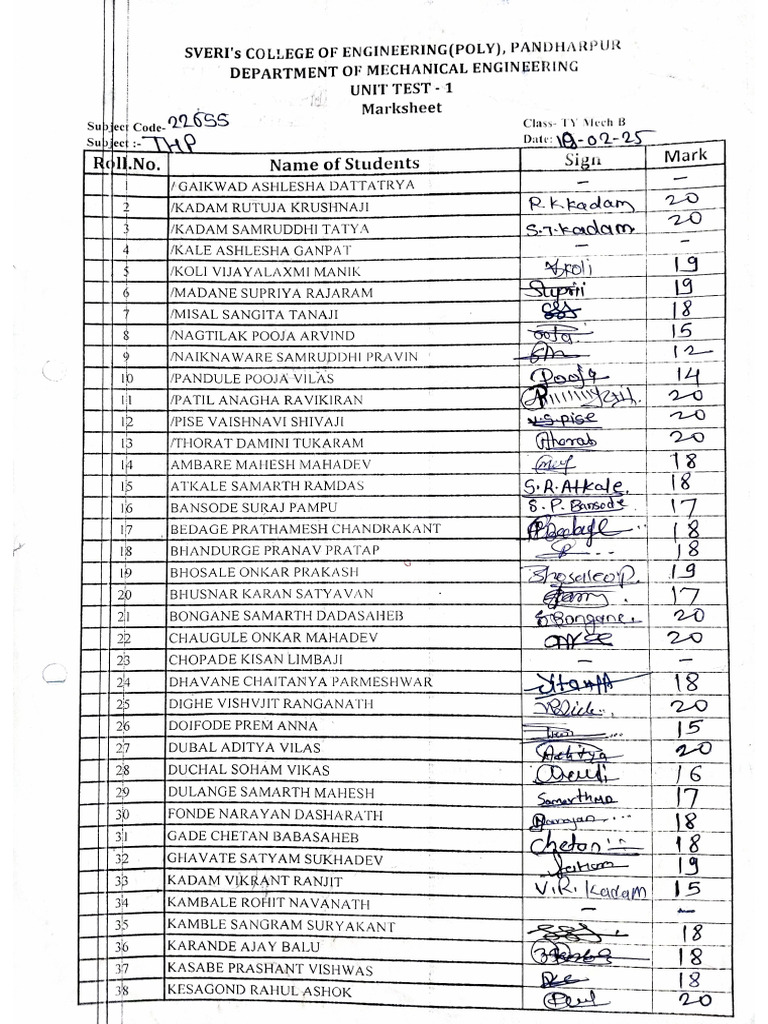 SVERI's COLLEGE OF ENGINEERING(POLY), PANDHARPUR
DEPARTMENT OF MECHANICAL ENGINEERING
UNIT TEST - 1
Marksheet
Subject Code- 22655 Class- TY Mech B
Subject :- THP Date: 19-02-25
Roll.No. Name of Students Sign Mark
1 /GAIKWAD ASHLESHA DATTATRYA – –
2 /KADAM RUTUJA KRUSHNAJI R.K.Kadam 20
3 /KADAM SAMRUDDHI TATYA S.T.Kadam 20
4 /KALE ASHLESHA GANPAT – –
5 /KOLI VIJAYALAXMI MANIK 19
6 /MADANE SUPRIYA RAJARAM 19
7 /MISAL SANGITA TANAJI 18
8 /NAGTILAK POOJA ARVIND 15
9 /NAIKNAWARE SAMRUDDHI PRAVIN 12
10 /PANDULE POOJA VILAS Pooja 14
11 /PATIL ANAGHA RAVIKIRAN 20
12 /PISE VAISHNAVI SHIVAJI V.S.pise 20
13 /THORAT DAMINI TUKARAM 20
14 AMBARE MAHESH MAHADEV 18
15 ATKALE SAMARTH RAMDAS S.R.Atkale. 18
16 BANSODE SURAJ PAMPU S.P.Bansode 17
17 BEDAGE PRATHAMESH CHANDRAKANT 18
18 BHANDURGE PRANAV PRATAP 18
19 BHOSALE ONKAR PRAKASH Bhosaleo.p. 19
20 BHUSNAR KARAN SATYAVAN 17
21 BONGANE SAMARTH DADASAHEB S.Bongane. 20
22 CHAUGULE ONKAR MAHADEV 20
23 CHOPADE KISAN LIMBAJI – –
24 DHAVANE CHAITANYA PARMESHWAR 18
25 DIGHE VISHVJIT RANGANATH 20
26 DOIFODE PREM ANNA 15
27 DUBAL ADITYA VILAS Aditya 20
28 DUCHAL SOHAM VIKAS 16
29 DULANGE SAMARTH MAHESH 17
30 FONDE NARAYAN DASHARATH Narayan 18
31 GADE CHETAN BABASAHEB Chetan 18
32 GHAVATE SATYAM SUKHADEV 19
33 KADAM VIKRANT RANJIT V.R. Kadam 15
34 KAMBALE ROHIT NAVANATH – –
35 KAMBLE SANGRAM SURYAKANT 18
36 KARANDE AJAY BALU 18
37 KASABE PRASHANT VISHWAS 18
38 KESAGOND RAHUL ASHOK 20